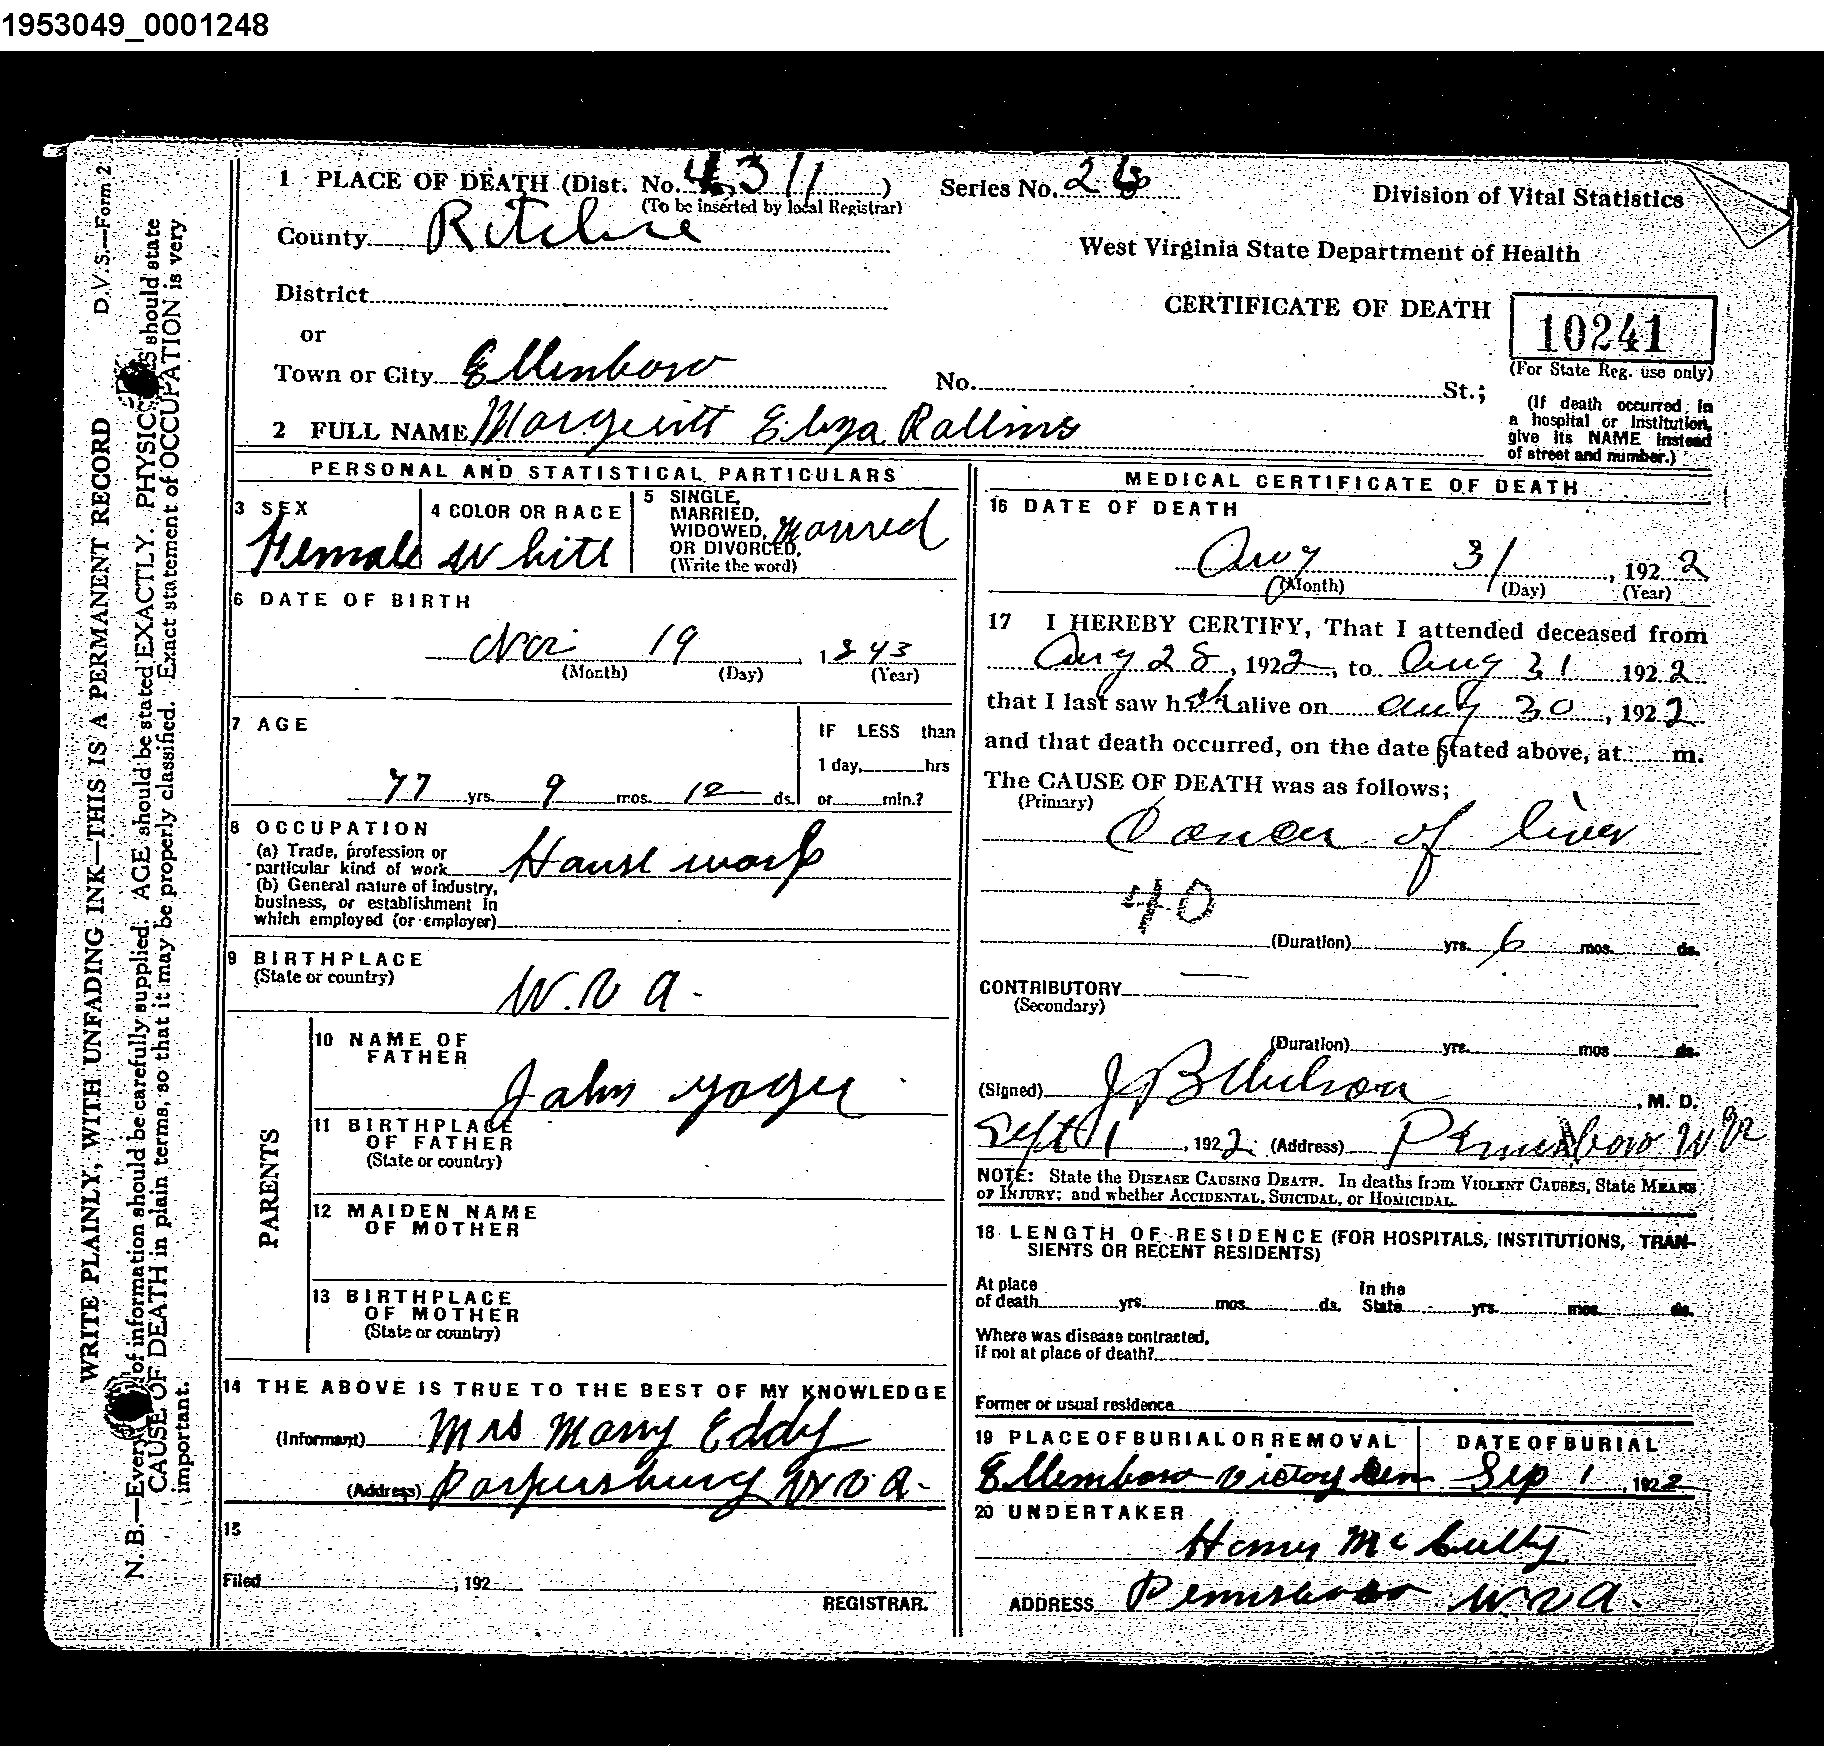 1953049_0001248
1 PLACE OF DEATH (Dist. No. 4311)
(To be inserted by local Registrar)
Series No. 26
Division of Vital Statistics
County Ritchie
West Virginia State Department of Health
District
CERTIFICATE OF DEATH
10241
(For State Reg. use only)
or
Town or City Ellenboro
No. St.;
(If death occurred in
a hospital or Institution,
give its NAME instead
of street and number.)
2 FULL NAME Elza Rollins
PERSONAL AND STATISTICAL PARTICULARS
3 SEX
Female
4 COLOR OR RACE
White
5 SINGLE,
MARRIED,
WIDOWED,
OR DIVORCED.
(Write the word)
Married
6 DATE OF BIRTH
Nov 19, 1843
(Month) (Day) (Year)
7 AGE
77 yrs. 9 mos. 12 ds.
IF LESS than
1 day, hrs
or min.?
8 OCCUPATION
(a) Trade, profession or
particular kind of work House work
(b) General nature of industry,
business, or establishment in
which employed (or employer)
9 BIRTHPLACE
(State or country)
W. V a.
PARENTS
10 NAME OF
FATHER
John
11 BIRTHPLACE
OF FATHER
(State or country)
12 MAIDEN NAME
OF MOTHER
13 BIRTHPLACE
OF MOTHER
(State or country)
14 THE ABOVE IS TRUE TO THE BEST OF MY KNOWLEDGE
(Informant) Mrs Marry Eddy
(Address) Parkersburg W V a.
15
Filed , 192
REGISTRAR.
MEDICAL CERTIFICATE OF DEATH
16 DATE OF DEATH
Aug 31, 1922
(Month) (Day) (Year)
17 I HEREBY CERTIFY, That I attended deceased from
Aug 28, 1922, to Aug 31 1922
that I last saw her alive on Aug 30, 1922
and that death occurred, on the date stated above, at m.
The CAUSE OF DEATH was as follows;
(Primary)
Cancer of liver
40
(Duration) yrs. 6 mos. ds.
CONTRIBUTORY
(Secondary)
(Duration) yrs. mos ds.
(Signed) J B Wilson, M. D.
Sept 1, 1922 (Address) Pennsboro W Va
NOTE: State the DISEASE CAUSING DEATH. In deaths from VIOLENT CAUSES, State MEANS
OF INJURY; and whether ACCIDENTAL, SUICIDAL, or HOMICIDAL.
18 LENGTH OF RESIDENCE (FOR HOSPITALS, INSTITUTIONS, TRAN-
SIENTS OR RECENT RESIDENTS)
At place
of death yrs. mos. ds.
In the
State yrs. mos. ds.
Where was disease contracted,
if not at place of death?
Former or usual residence
19 PLACE OF BURIAL OR REMOVAL
Ellenboro Victory Cem
DATE OF BURIAL
Sep 1, 1922
20 UNDERTAKER
Henry
ADDRESS Pennsboro W. V a.
D.V.S.—Form 2
WRITE PLAINLY, WITH UNFADING INK—THIS IS A PERMANENT RECORD
N. B.—Every of information should be carefully supplied. AGE should be stated EXACTLY. PHYSIC S should state
CAUSE OF DEATH in plain terms, so that it may be properly classified. Exact statement of OCCUPATION is very
important.